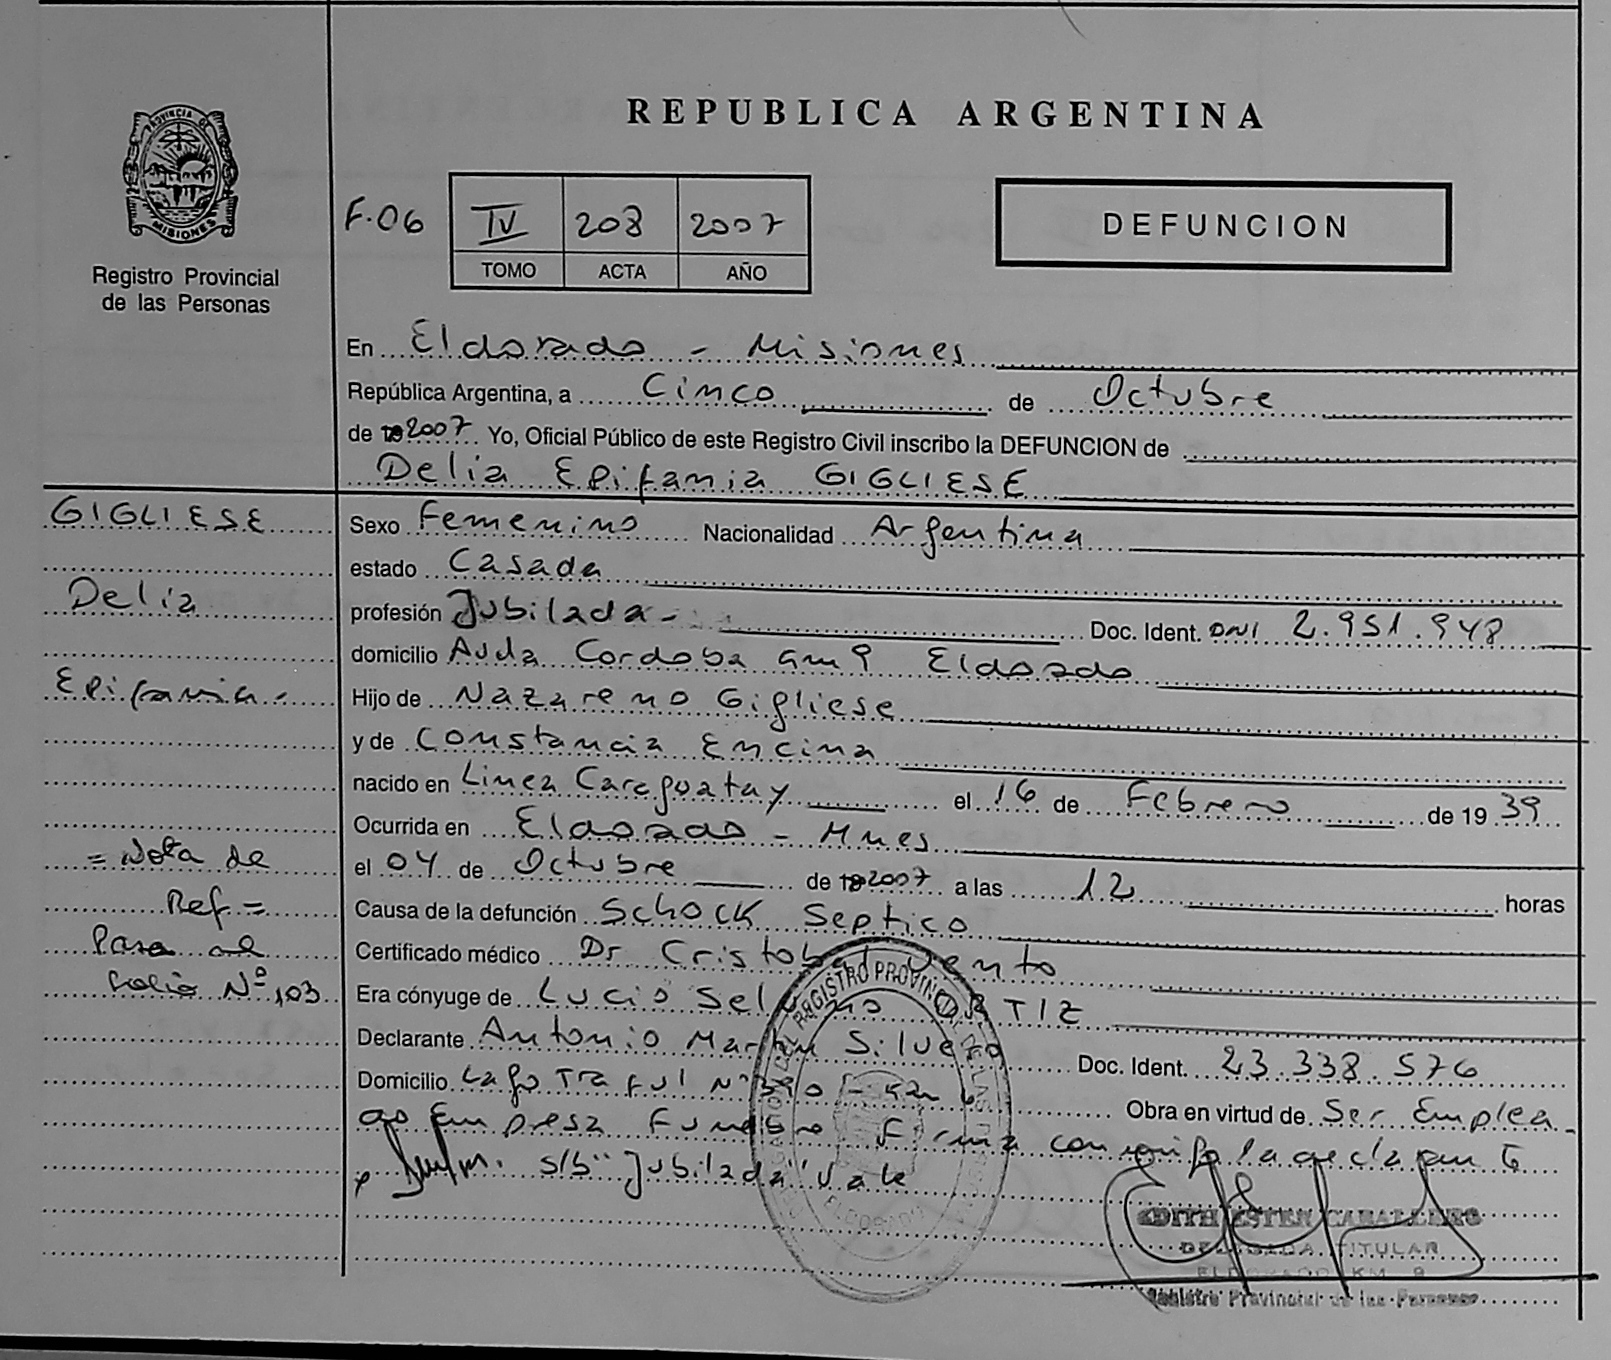 REPUBLICA ARGENTINA
PROVINCIA DE
MISIONES
Registro Provincial
de las Personas
F.06 IV 208 2007
TOMO ACTA AÑO
DEFUNCION
En Eldorado - Misiones
República Argentina, a Cinco de Octubre
de 2007 Yo, Oficial Público de este Registro Civil inscribo la DEFUNCION de
Delia Epifania GIGLIESE
GIGLIESE
Delia
Epifania -
= Nota de
Ref =
Pasa al
folio Nº 103
Sexo Femenino Nacionalidad Argentina
estado Casada
profesión Jubilada - Doc. Ident. DNI 2.951.948
domicilio Avda Cordoba Km 9 Eldorado
Hijo de Nazareno Gigliese
y de Constancia Encina
nacido en Linea Caraguatay el 16 de Febrero de 19 39
Ocurrida en Eldorado - Mnes
el 04 de Octubre de 2007 a las 12 horas
Causa de la defunción SCHOCK Septico
Certificado médico Dr Cristobal Vento
Era cónyuge de Lucio ORTIZ
Declarante Antonio Martin Silvero Doc. Ident. 23.338.576
Domicilio Lago Traful Nº Km Obra en virtud de Ser Emplea
do Empresa Funebre Firma conmigo la declarante
s/b "Jubilada" Vale
REGISTRO PROVINCIAL DE LAS
ELDORADO
EDITH ESTER CABALLERO
DELEGADA TITULAR
ELDORADO KM. 9
Registro Provincial de las Personas